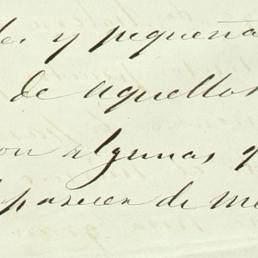 y pequeña
de aquellos
algunas, q
parecen de me